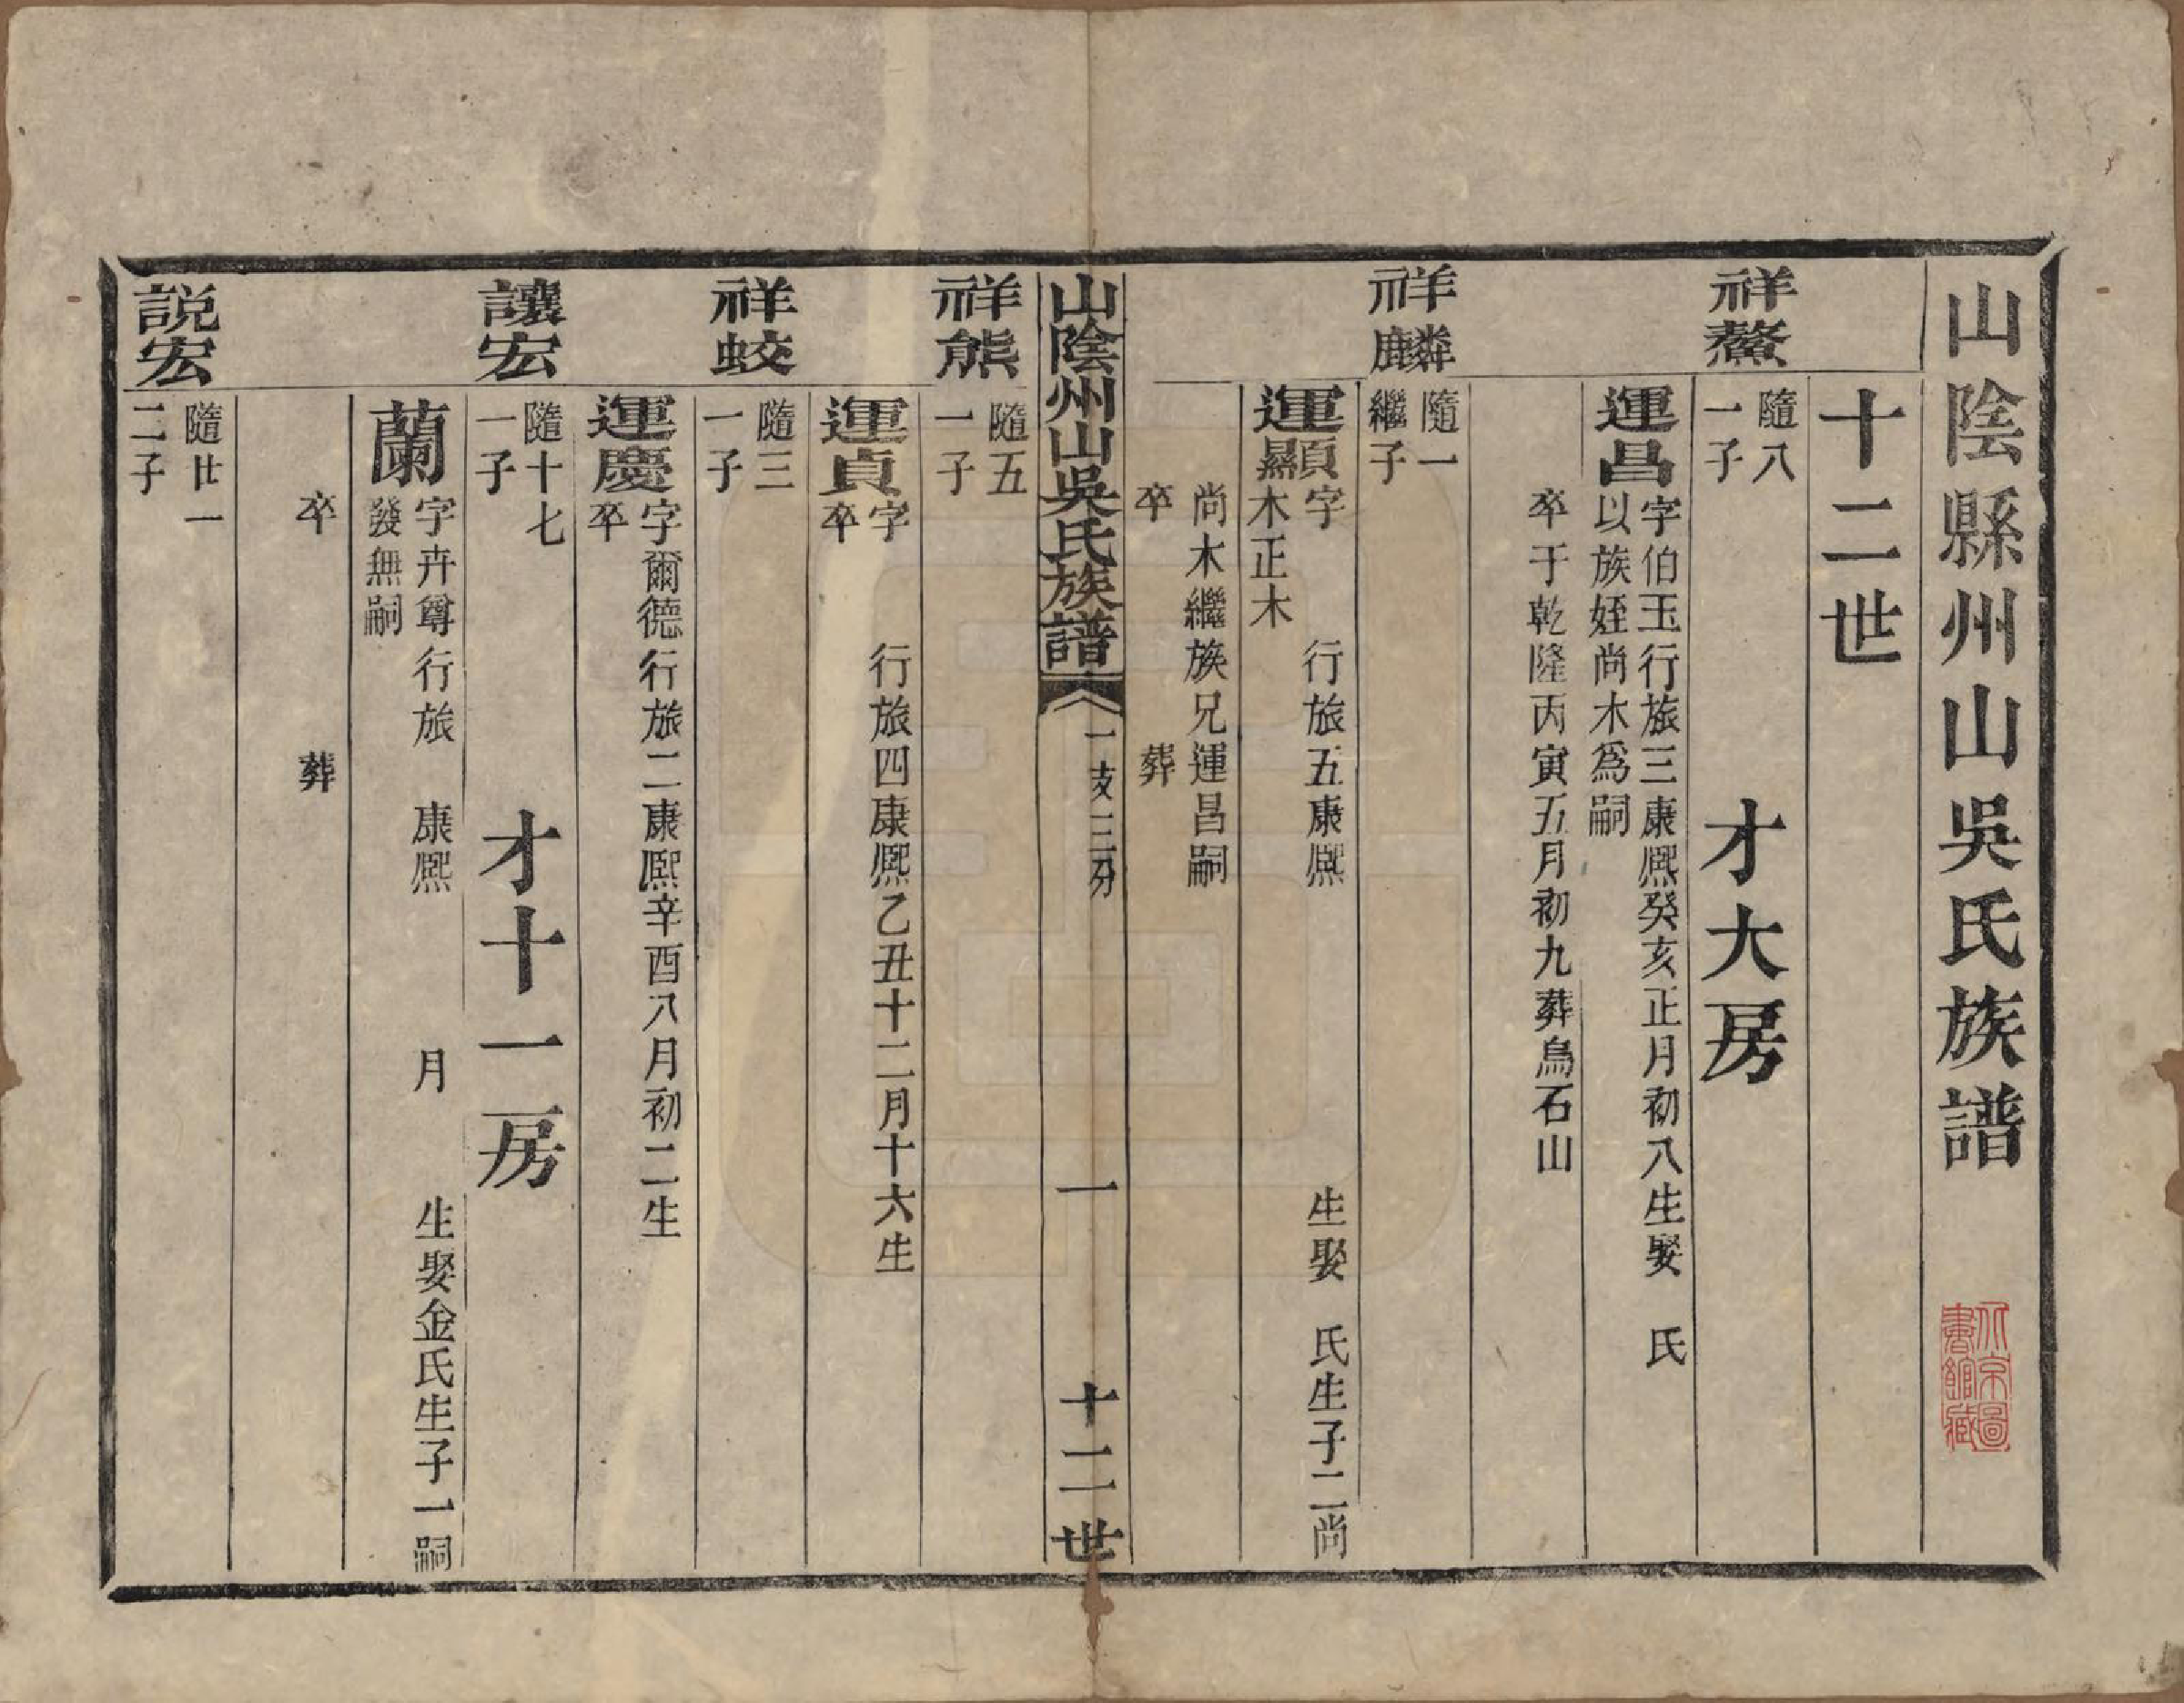 山陰縣州山吳氏族譜
北京圖
書館藏
十二世
祥鰲
隨八
一子
才大房
運昌
字伯玉行旅三康熈癸亥正月初八生娶　氏
以族姪尚木為嗣
卒于乾隆丙寅五月初九葬烏石山
祥麟
隨一
繼子
運顯
字　行旅五康熈　生娶　氏生子二尚
木正木
尚木繼族兄運昌嗣
卒　葬
山陰州山吳氏族譜　一支三分　一　十二世
祥熊
隨五
一子
運貞
字　行旅四康熈乙丑十二月十六生
卒
祥蛟
隨三
一子
運慶
字爾德行旅二康熈辛酉八月初二生
卒
讓宏
隨十七
一子
才十一房
蘭
字卉尊行旅　康熈　月　生娶金氏生子一嗣
發無嗣
卒　葬
説宏
隨廿一
二子